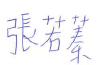 張若蓁